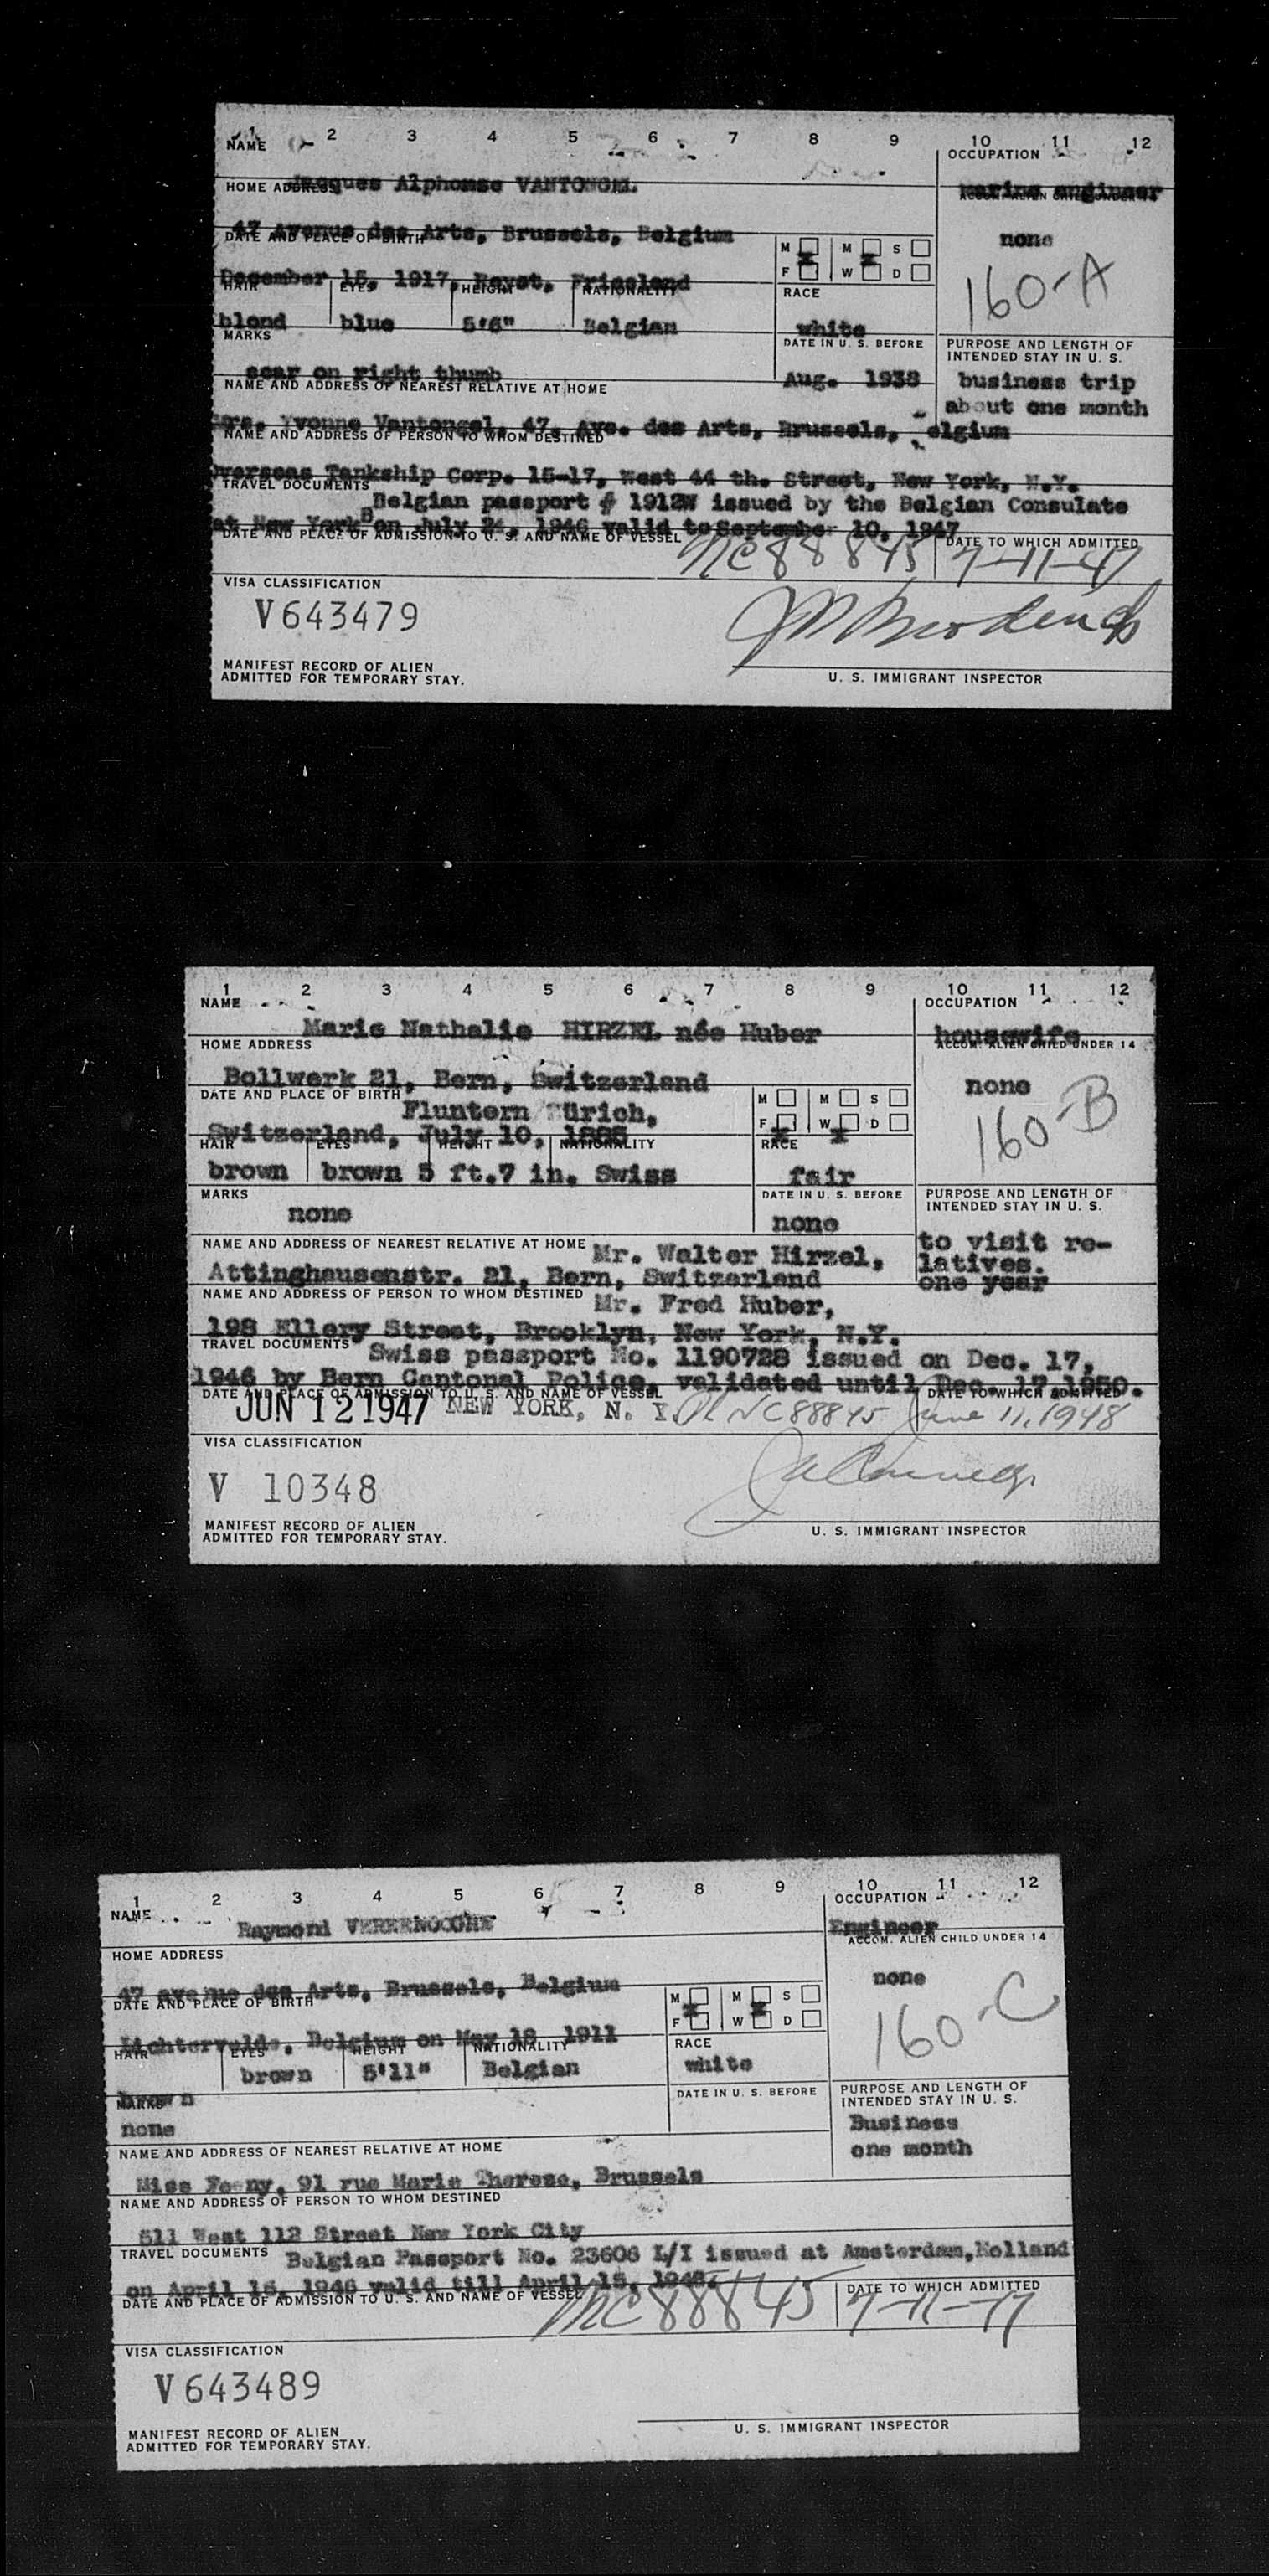 1 2 3 4 5 6 7 8 9 10 11 12
NAME OCCUPATION
Jacques Alphonse VANTONGEL marine engineer
HOME ADDRESS ACCOM. ALIEN CHILD UNDER 14
47 Avenue des Arts, Brussels, Belgium none
DATE AND PLACE OF BIRTH M M S
160-A
December 15, 1917, Friesland F W D
HAIR EYES HEIGHT NATIONALITY RACE
blond blue 5'6" Belgian white
MARKS DATE IN U. S. BEFORE PURPOSE AND LENGTH OF
INTENDED STAY IN U. S.
scar on right thumb Aug. 1938 business trip
NAME AND ADDRESS OF NEAREST RELATIVE AT HOME about one month
Mrs. Yvonne Vantongel, 47, Ave. des Arts, Brussels, elgium
NAME AND ADDRESS OF PERSON TO WHOM DESTINED
Overseas Tankship Corp. 15-17, West 44 th. Street, New York, N.Y.
TRAVEL DOCUMENTS Belgian passport # 1912W issued by the Belgian Consulate
at New York on July 24, 1946 valid to September 10, 1947
DATE AND PLACE OF ADMISSION TO U. S. AND NAME OF VESSEL DATE TO WHICH ADMITTED
NC 88845 7-11-47
VISA CLASSIFICATION
V643479
MANIFEST RECORD OF ALIEN
ADMITTED FOR TEMPORARY STAY. U. S. IMMIGRANT INSPECTOR
1 2 3 4 5 6 7 8 9 10 11 12
NAME OCCUPATION
Marie Nathalie HIRZEL née Huber housewife
HOME ADDRESS ACCOM. ALIEN CHILD UNDER 14
Bollwerk 21, Bern, Switzerland none
DATE AND PLACE OF BIRTH M M S
Fluntern Zürich, F W D
160-B
Switzerland, July 10,
HAIR EYES HEIGHT NATIONALITY RACE
brown brown 5 ft.7 in. Swiss fair
MARKS DATE IN U. S. BEFORE PURPOSE AND LENGTH OF
INTENDED STAY IN U. S.
none none
NAME AND ADDRESS OF NEAREST RELATIVE AT HOME Mr. Walter Hirzel, to visit re-
latives.
Attinghausenstr. 21, Bern, Switzerland one year
NAME AND ADDRESS OF PERSON TO WHOM DESTINED Mr. Fred Huber,
198 Ellery Street, Brooklyn, New York, N.Y.
TRAVEL DOCUMENTS Swiss passport No. 1190728 issued on Dec. 17,
1946 by Bern Cantonal Police, validated until Dec. 17 1950.
DATE AND PLACE OF ADMISSION TO U. S. AND NAME OF VESSEL DATE TO WHICH ADMITTED
JUN 12 1947 NEW YORK, N. Y. NC 88845 June 11, 1948
VISA CLASSIFICATION
V 10348
MANIFEST RECORD OF ALIEN
ADMITTED FOR TEMPORARY STAY. U. S. IMMIGRANT INSPECTOR
1 2 3 4 5 6 7 8 9 10 11 12
NAME OCCUPATION
Raymond Engineer
HOME ADDRESS ACCOM. ALIEN CHILD UNDER 14
47 avenue des Arts, Brussels, Belgium none
DATE AND PLACE OF BIRTH M M S
F W D
160-C
Lichtervelde, Belgium on May 18 1911
HAIR EYES HEIGHT NATIONALITY RACE
brown brown 5'11" Belgian white
MARKS DATE IN U. S. BEFORE PURPOSE AND LENGTH OF
INTENDED STAY IN U. S.
none Business
one month
NAME AND ADDRESS OF NEAREST RELATIVE AT HOME
Miss 91 rue Marie Therese, Brussels
NAME AND ADDRESS OF PERSON TO WHOM DESTINED
511 West 112 Street New York City
TRAVEL DOCUMENTS Belgian Passport No. 23606 L/I issued at Amsterdam, Holland
on April 16, 1946 valid till April 15, 1948.
DATE AND PLACE OF ADMISSION TO U. S. AND NAME OF VESSEL DATE TO WHICH ADMITTED
NC 88845 7-11-47
VISA CLASSIFICATION
V643489
MANIFEST RECORD OF ALIEN
ADMITTED FOR TEMPORARY STAY. U. S. IMMIGRANT INSPECTOR